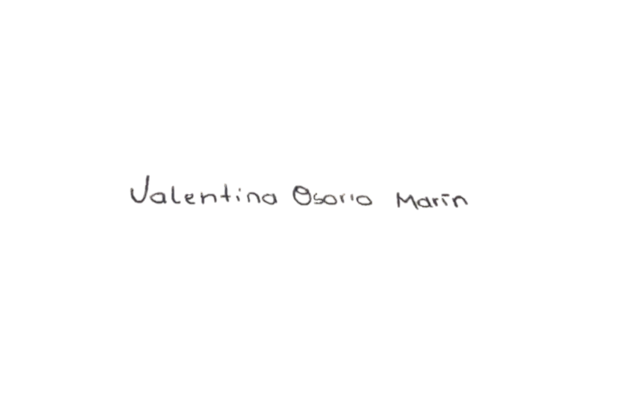 Valentina Osorio Marín